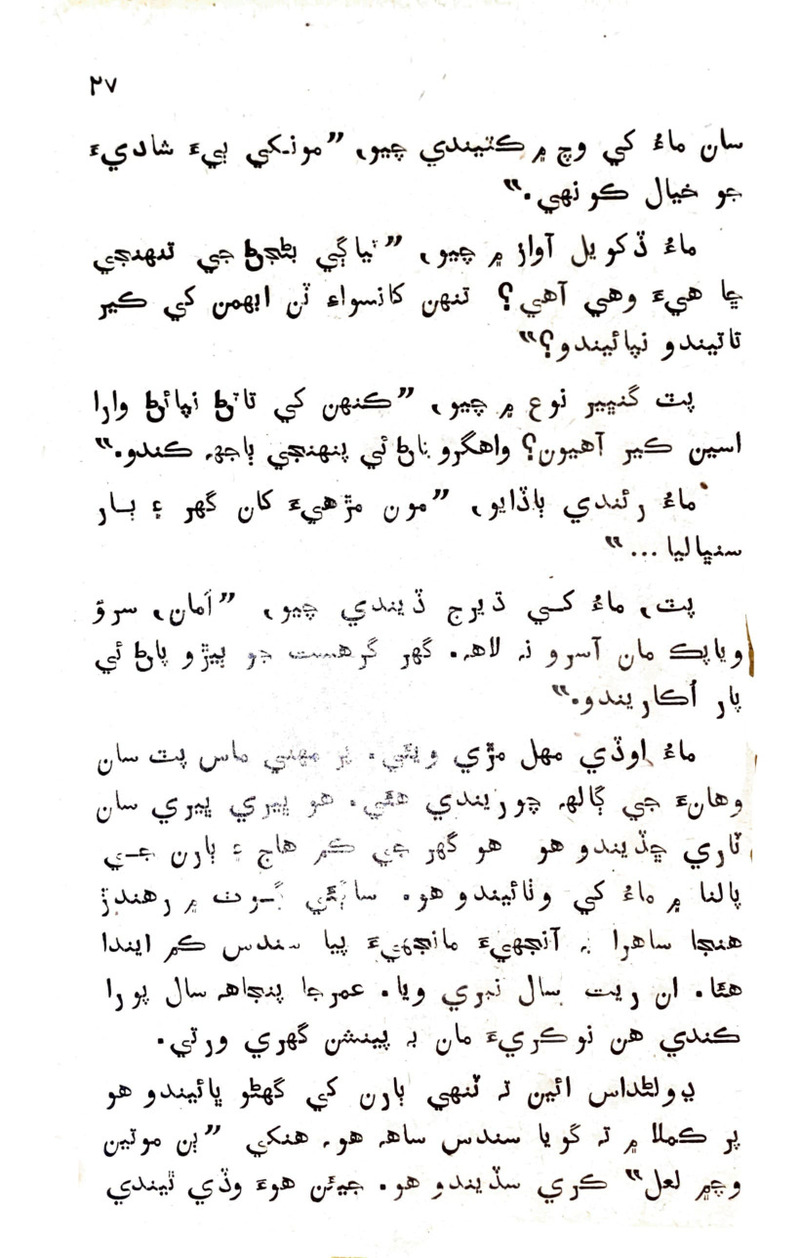 ۲۷
سان ماءُ کي وچ ۾ ڪٽيندي چيو، ”مونـکي ٻيءَ شاديءَ
جو خيال ڪونهي.“
ماءُ ڏکويل آواز ۾ چيو، ”تياڳي بڻجڻ جي تنهنجي
ڇا هيءَ وهي آهي؟ تنهن کانسواءِ ٽن ابهمن کي ڪير
تاتيندو نپائيندو؟“
پٽ گنڀير نوع ۾ چيو، ”ڪنهن کي تاتڻ نپائڻ وارا
اسين ڪير آهيون؟ واهگرو پاڻ ئي پنهنجي ٻاجھ ڪندو.“
ماءُ رئندي ٻاڏايو، ”مون مڙهيءَ کان گهر ۽ ٻـار
سنڀاليا ...“
پٽ، ماءُ کـي ڌيرج ڏيندي چيو، ”اَمان، سرو
وياپڪ مان آسرو نہ لاھ. گهر گرهست جو ٻيڙو پاڻ ئي
پار اُڪاريندو.“
ماءُ اوڏي مهل مڙي ويئي. پر مهني ماس پٽ سان
وهانءَ جي ڳالھ چوريندي هئي. هو ڀيري ڀيري سان
ٽاري ڇڏيندو هو هو گهر جي ڪم ڪاج ۽ ٻارن جـي
پالنا ۾ ماءُ کي وٺائيندو هو. ساڳئي ڳـوٺ ۾ رهندڙ
هنجا ساهرا بہ آنجهيءَ مانجهيءَ پيا سندس ڪم ايندا
هئا. ان ريت سال نبري ويا. عمر جا پنجاھ سال پورا
ڪندي هن نوڪريءَ مان بہ پينشن گهري ورتي.
ڊولڻداس ائين تہ ٽنهي ٻارن کي گهڻو ڀائيندو هو
پر ڪملا ۾ تہ گويا سندس ساھ هو. هنکي ”ٻن موتين
وچ۾ لعل“ ڪري سڏيندو هو. جيئن هوءَ وڏي ٿيندي